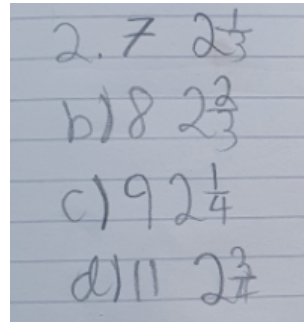 2. 7 2 1/3
b) 8 2 2/3
c) 9 2 1/4
d) 11 2